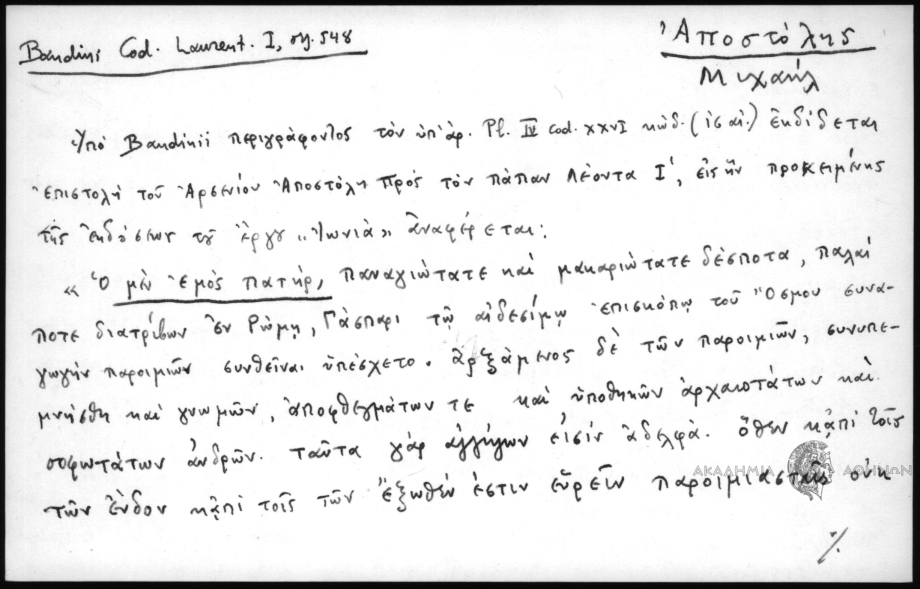 Bandini Cod. Laurent. I, σγ. 548
Ἀποστόλης
Μιχαήλ
Ὑπὸ Bandinii περιγράφοντος τὸν ὑπ' ἀρ. Pl. IV cod. XXVI κώδ. (ις αἰ.) ἐκδίδεται
ἐπιστολὴ τοῦ Ἀρσενίου Ἀποστόλη πρὸς τὸν πάπαν Λέοντα Ι', εἰς ἣν προκειμένης
τῆς ἐκδόσεως τοῦ ἔργου „Ἰωνιὰ» ἀναφέρεται:
« Ὁ μὲν ἐμὸς πατήρ, παναγιώτατε καὶ μακαριώτατε δέσποτα, πάλαι
ποτε διατρίβων ἐν Ρώμῃ, Γάσπαρι τῷ αἰδεσίμῳ ἐπισκόπῳ τοῦ Ὄσμου συνα-
γωγὴν παροιμιῶν συνθεῖναι ὑπέσχετο. ἀρξάμενος δὲ τῶν παροιμιῶν, συνυπε-
μνήσθη καὶ γνωμῶν, ἀποφθεγμάτων τε καὶ ὑποθηκῶν ἀρχαιοτάτων καὶ
σοφωτάτων ἀνδρῶν. ταῦτα γὰρ ἀλλήλων εἰσὶν ἀδελφά. ὅθεν κἀπὶ τοῖς
τῶν ἔνδον κἀπὶ τοῖς τῶν ἔξωθέν ἐστιν εὑρεῖν παροιμιαστὰς οὐκ
ΑΚΑΔΗΜΙΑ ΑΘΗΝΩΝ
%